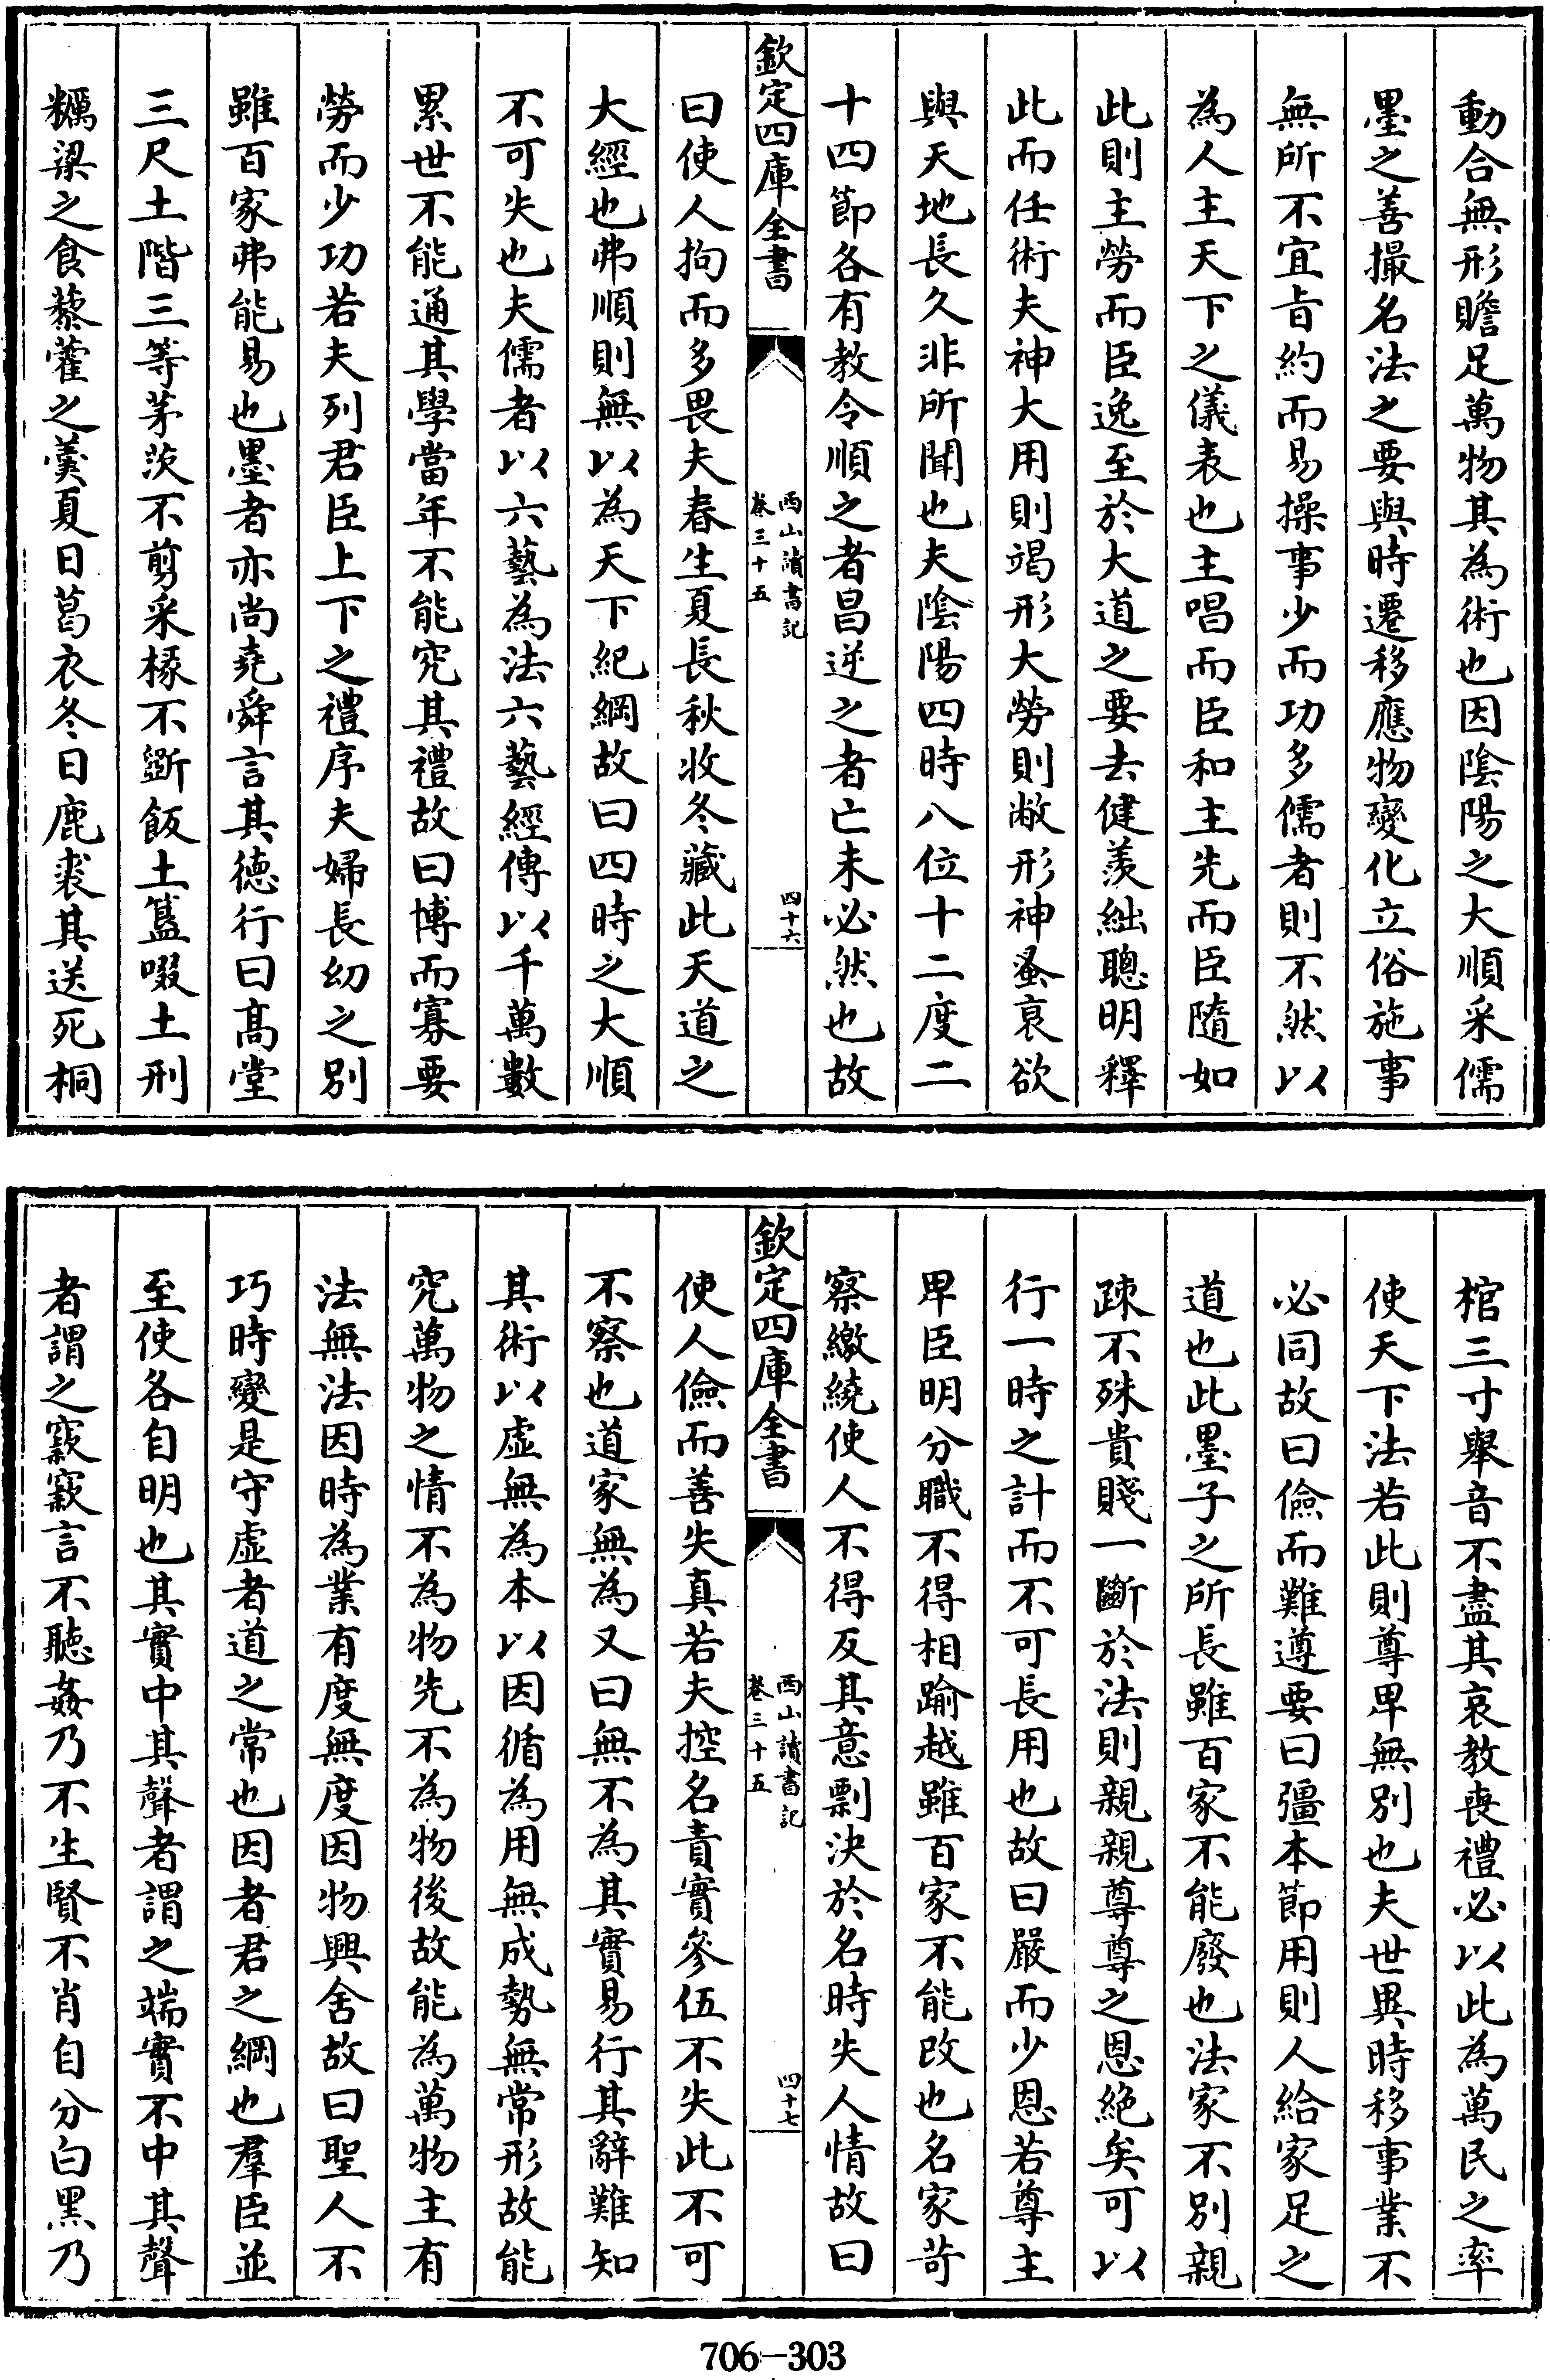 動合無形贍足萬物其為術也因陰陽之大順采儒
墨之善撮名法之要與時遷移應物變化立俗施事
無所不宜㫖約而易操事少而功多儒者則不然以
為人主天下之儀表也主唱而臣和主先而臣隨如
此則主勞而臣逸至於大道之要去健羨絀聰明釋
此而任術夫神大用則竭形大勞則敝形神蚤衰欲
與天地長久非所聞也夫陰陽四時八位十二度二
十四節各有教令順之者昌逆之者亡未必然也故
欽定四庫全書
西山讀書記
卷三十五
四十六
曰使人拘而多畏夫春生夏長秋收冬藏此天道之
大經也弗順則無以為天下紀綱故曰四時之大順
不可失也夫儒者以六藝為法六藝經傳以千萬數
累世不能通其學當年不能究其禮故曰博而寡要
勞而少功若夫列君臣上下之禮序夫婦長幼之別
雖百家弗能易也墨者亦尚堯舜言其德行曰髙堂
三尺土階三等茅茨不剪采椽不斵飯土簋啜土刑
糲粱之食藜藿之羮夏日葛衣冬日鹿裘其送死桐
棺三寸舉音不盡其哀教喪禮必以此為萬民之率
使天下法若此則尊卑無別也夫世異時移事業不
必同故曰儉而難遵要曰彊本節用則人給家足之
道也此墨子之所長雖百家不能廢也法家不別親
疎不殊貴賤一斷於法則親親尊尊之恩絶矣可以
行一時之計而不可長用也故曰嚴而少恩若尊主
卑臣明分職不得相踰越雖百家不能改也名家苛
察繳繞使人不得反其意剽決於名時失人情故曰
欽定四庫全書
西山讀書記
卷三十五
四十七
使人儉而善失真若夫控名責實參伍不失此不可
不察也道家無為又曰無不為其實易行其辭難知
其術以虛無為本以因循為用無成勢無常形故能
究萬物之情不為物先不為物後故能為萬物主有
法無法因時為業有度無度因物興舍故曰聖人不
巧時變是守虛者道之常也因者君之綱也羣臣並
至使各自明也其實中其聲者謂之端實不中其聲
者謂之窾窾言不聽姦乃不生賢不肖自分白黑乃
706-303